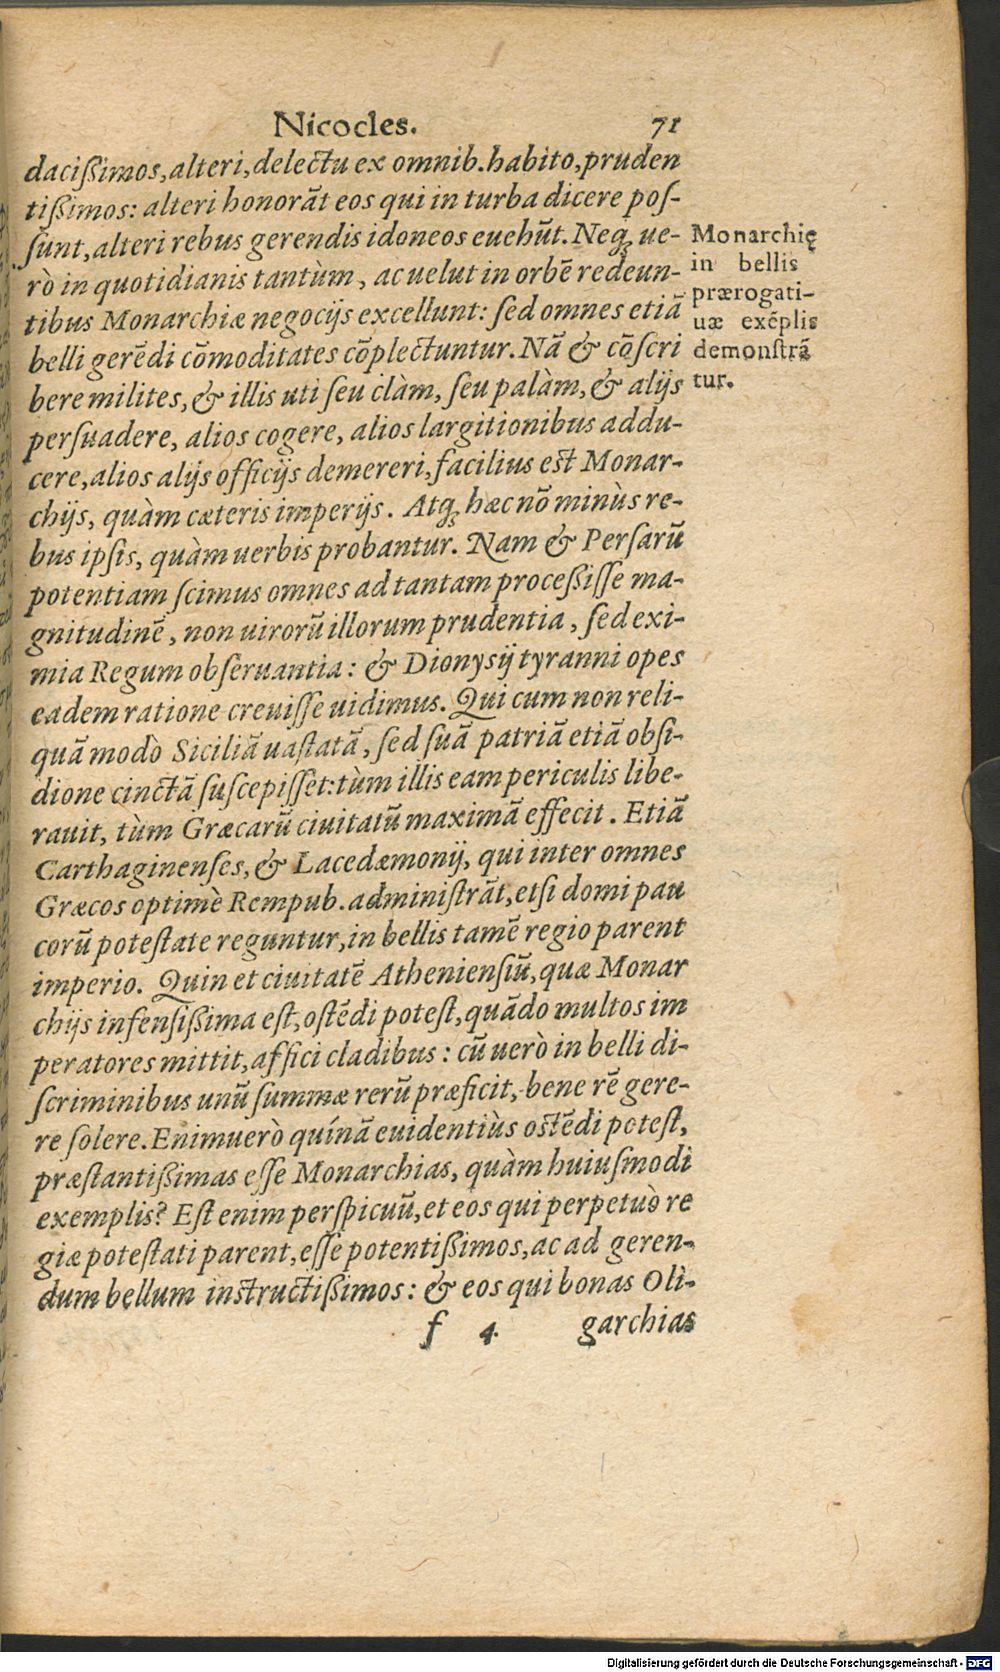 Nicocles. 71
daciſſimos, alteri, delectu ex omnib. habito, pruden
tiſſimos: alteri honorãt eos qui in turba dicere poſ-
ſunt, alteri rebus gerendis idoneos euehũt. Neq; ue-
rò in quotidianis tantùm, ac uelut in orbẽ redeun-
tibus Monarchiæ negocijs excellunt: ſed omnes etiã
belli gerẽdi cõmoditates cõplectuntur. Nã & cõſcri
bere milites, & illis uti ſeu clàm, ſeu palàm, & alijs
perſuadere, alios cogere, alios largitionibus addu-
cere, alios alijs officijs demereri, facilius eſt Monar-
chijs, quàm cæteris imperijs. Atq; hæc nõ minùs re-
bus ipſis, quàm uerbis probantur. Nam & Perſarũ
potentiam ſcimus omnes ad tantam proceſſiſſe ma-
gnitudinẽ, non uirorũ illorum prudentia, ſed exi-
mia Regum obſeruantia: & Dionyſij tyranni opes
eadem ratione creuiſſe uidimus. Qui cum non reli-
quã modò Siciliã uaſtatã, ſed ſuã patriã etiã obſi-
dione cinctã ſuſcepiſſet: tùm illis eam periculis libe-
rauit, tùm Græcarũ ciuitatũ maximã effecit. Etiã
Carthaginenſes, & Lacedæmonij, qui inter omnes
Græcos optimè Rempub. adminiſtrãt, etſi domi pau
corũ poteſtate reguntur, in bellis tamẽ regio parent
imperio. Quin et ciuitatẽ Athenienſiũ, quæ Monar
chijs infenſiſſima eſt, oſtẽdi poteſt, quãdo multos im
peratores mittit, affici cladibus: cũ uerò in belli di-
ſcriminibus unũ ſummæ rerũ præficit, bene rẽ gere-
re ſolere. Enimuerò quínã euidentiùs oſtẽdi poteſt,
præſtantiſſimas eſſe Monarchias, quàm huiuſmodi
exemplis? Eſt enim perſpicuũ, et eos qui perpetuò re
giæ poteſtati parent, eſſe potentiſſimos, ac ad geren-
dum bellum inſtructiſſimos: & eos qui bonas Oli-
f 4 garchias
Monarchię
in bellis
prærogati-
uæ exẽplis
demonſtrã
tur.
Digitalisierung gefördert durch die Deutsche Forschungsgemeinschaft - DFG